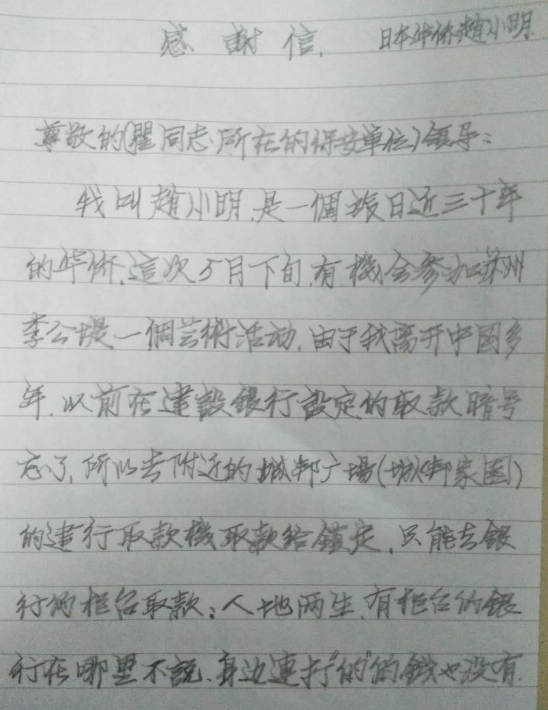 感謝信. 日本华侨趙小明.
尊敬的(瞿同志所在的保安单位)领导:
我叫趙小明,是一個旅日近三十年
的华侨,這次5月下旬,有機会参加苏州
李公堤一個芸術活动,由于我离开中国多
年,以前在建設銀行設定的取款暗号
忘了,所以去附近的城邦广場(城邦家园)
的建行取款機取款给鎖定,只能去銀
行的柜台取款;人地两生,有柜台的銀
行在哪里不説,身边連打"的"的錢也没有.